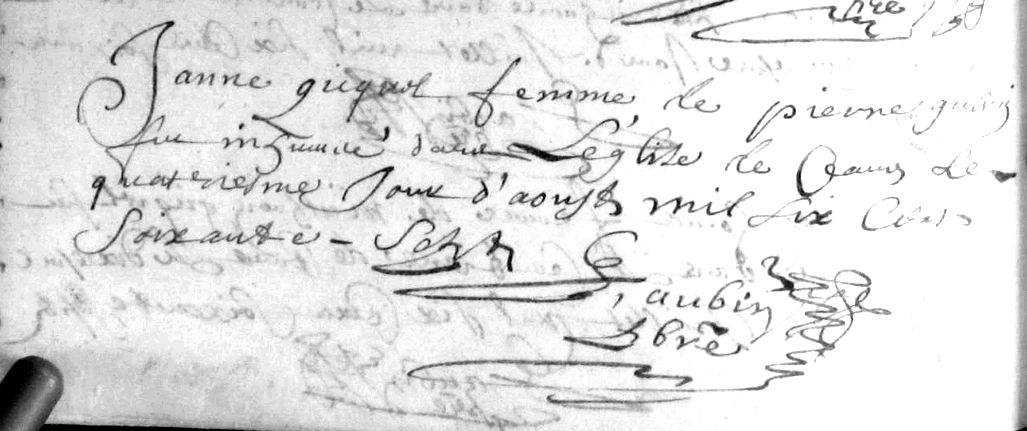 Janne gicquel femme de pierre guerin
fut inhumée dans L'église de Crans le
quatriesme Jour d'aoust mil six Cens
Soixante - Sept
G, aubin
pbre